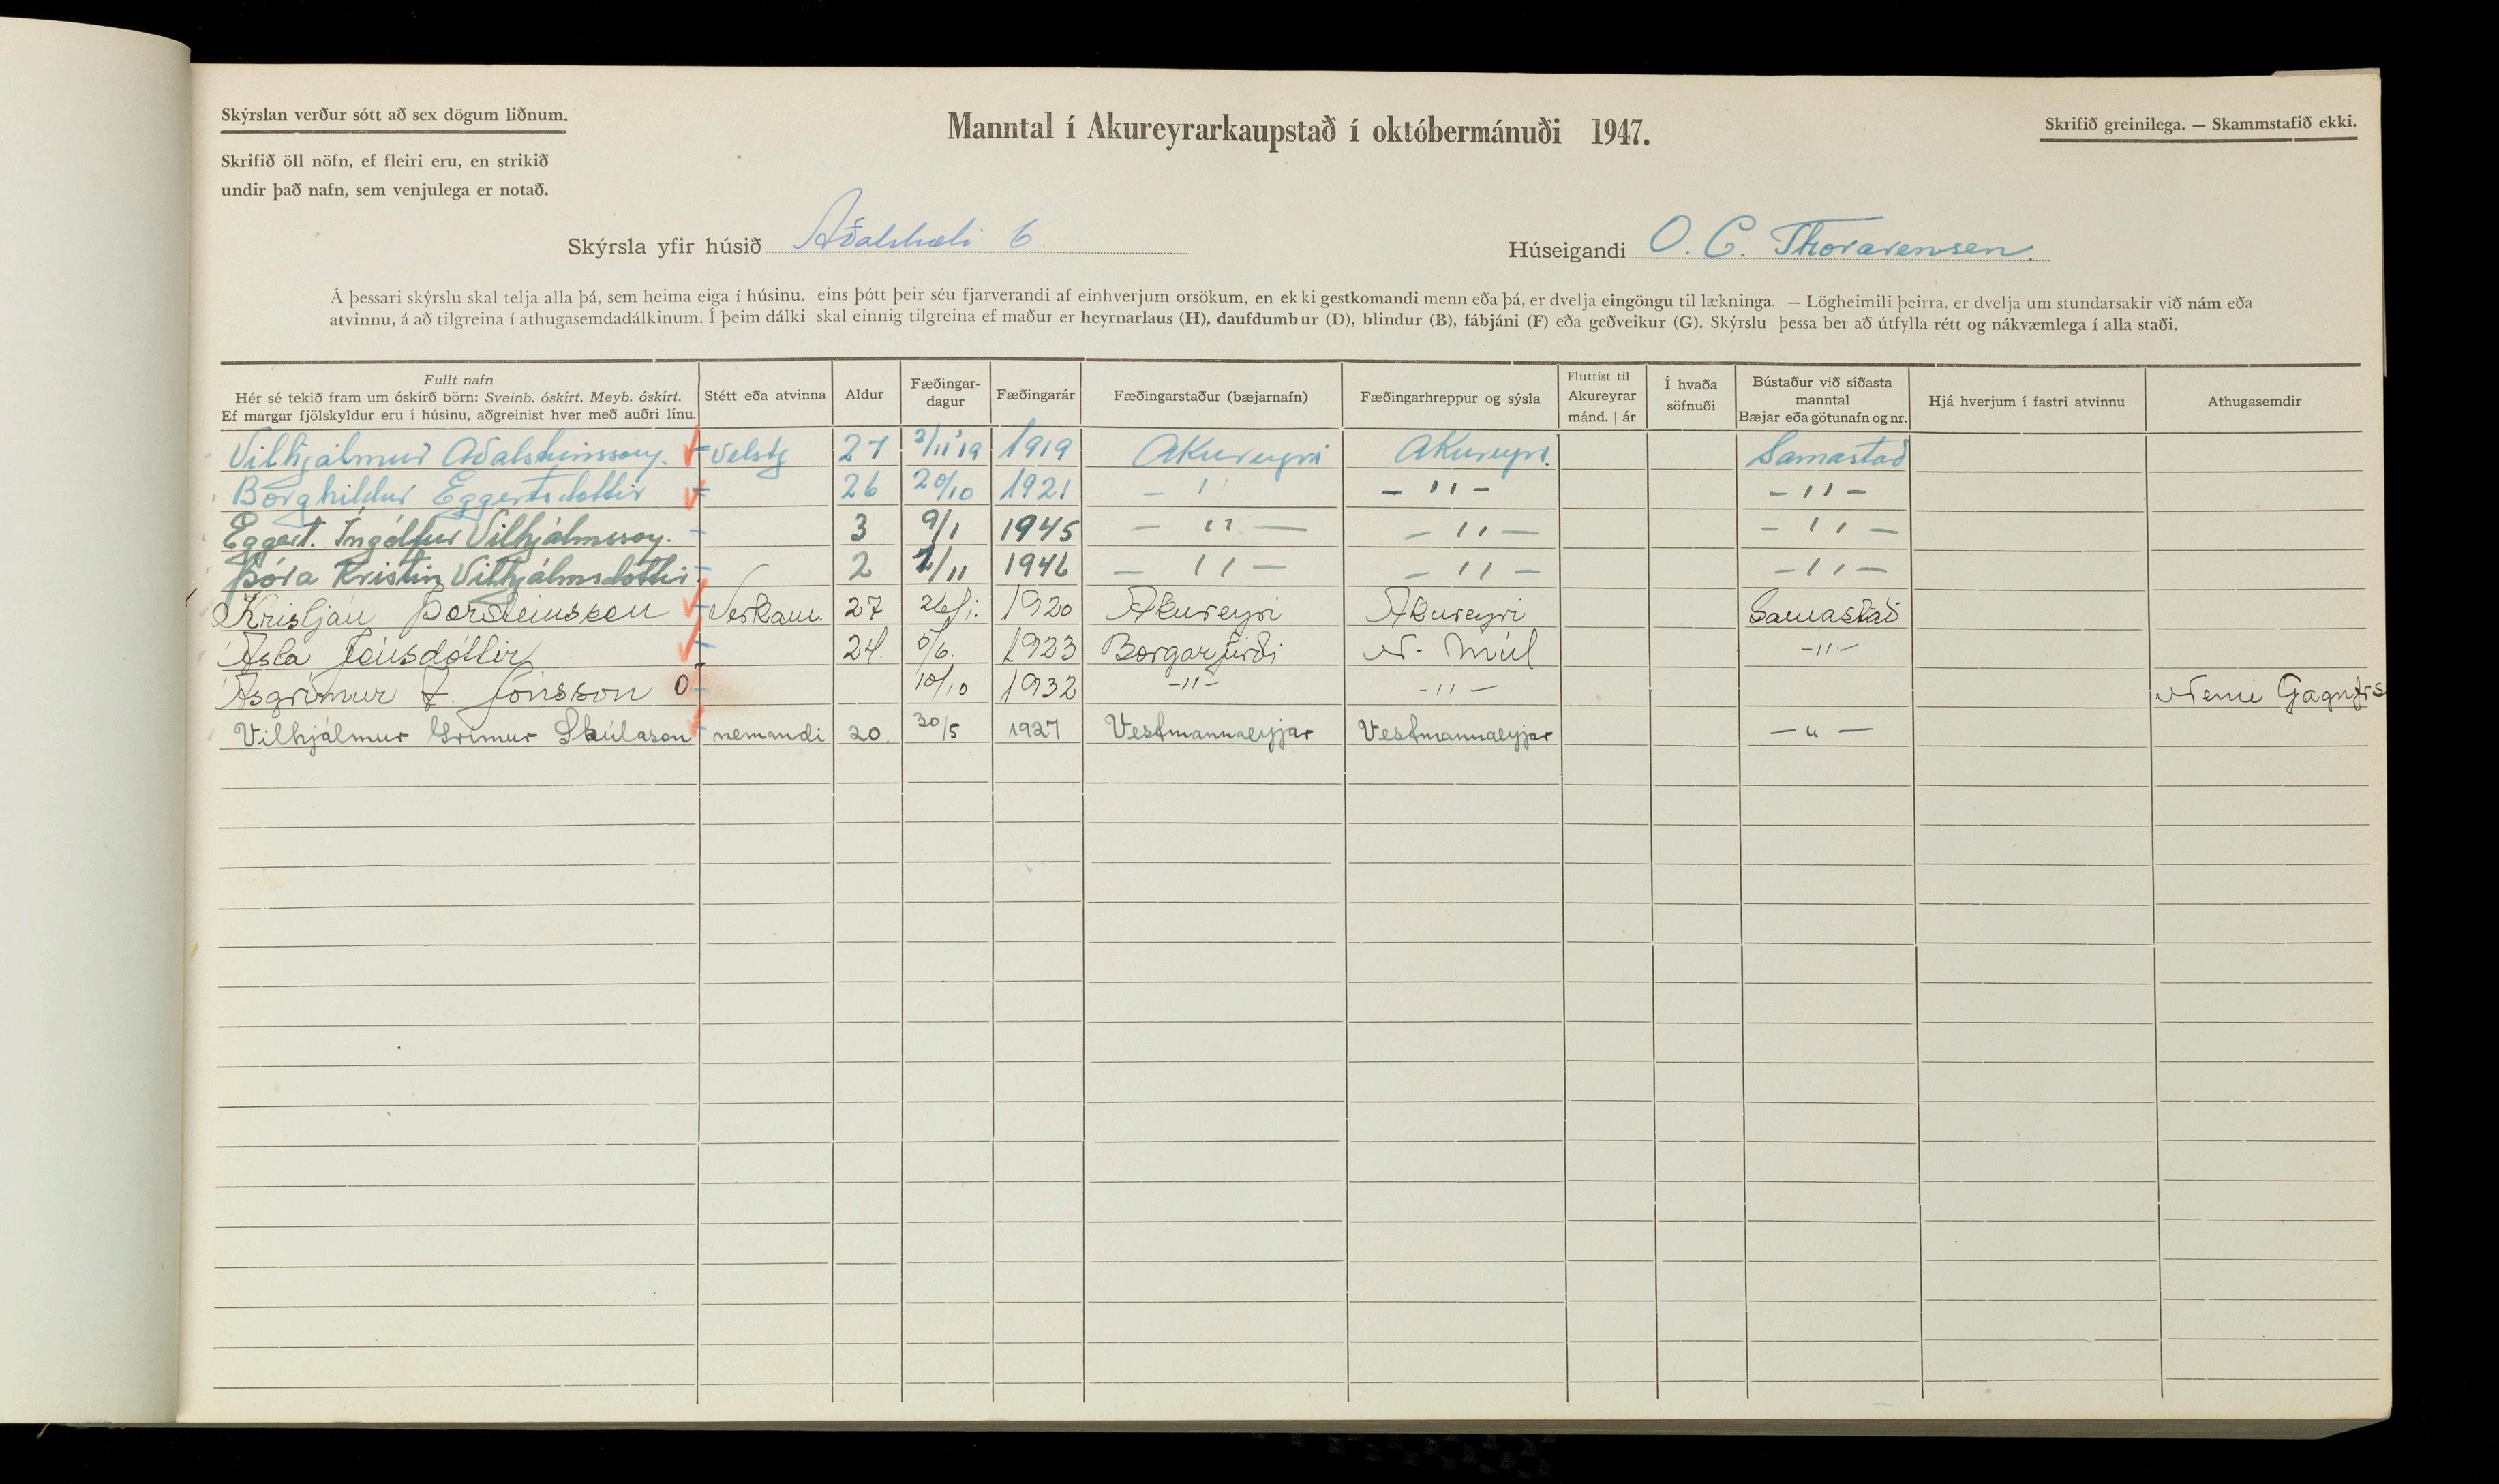 Skýrslan verður sótt að sex dögum liðnum.
Skrifið öll nöfn, ef fleiri eru, en strikið
undir það nafn, sem venjulega er notað.
Manntal í Akureyrarkaupstað í októbermánuði 1947.
Skrifið greinilega. — Skammstafið ekki.
Skýrsla yfir húsið 6
Húseigandi O. C. Thorarensen.
Á þessari skýrslu skal telja alla þá, sem heima eiga í húsinu, eins þótt þeir séu fjarverandi af einhverjum orsökum, en ekki gestkomandi menn eða þá, er dvelja eingöngu til lækninga. — Lögheimili þeirra, er dvelja um stundarsakir við nám eða
atvinnu, á að tilgreina í athugasemdadálkinum. Í þeim dálki skal einnig tilgreina ef maður er heyrnarlaus (H), daufdumbur (D), blindur (B), fábjáni (F) eða geðveikur (G). Skýrslu þessa ber að útfylla rétt og nákvæmlega í alla staði.
Fullt nafn
Hér sé tekið fram um óskírð börn: Sveinb. óskírt. Meyb. óskírt.
Ef margar fjölskyldur eru í húsinu, aðgreinist hver með auðri línu.
Stétt eða atvinna
Aldur
Fæðingar-
dagur
Fæðingarár
Fæðingarstaður (bæjarnafn)
Fæðingarhreppur og sýsla
Fluttist til
Akureyrar
mánd. | ár
Í hvaða
söfnuði
Bústaður við síðasta
manntal
Bæjar eða götunafn og nr.
Hjá hverjum í fastri atvinnu
Athugasemdir
Vilhjálmur Aðalsteinsson. Velstj 27 3/11 '19 1919 Akureyri Akureyri. Samastað
Borghildur Eggertsdottir 26 20/10 1921 — " — " — — " —
Eggert. Ingólfur Vilhjálmsson. 3 9/1 1945 — " — — " — — " —
Þóra Kristin Vilhjálmsdottir. 2 /11 1946 — " — — " — — " —
Kristján Þorsteinsson Verkam. 27 26/1. 1920 Akureyri Akureyri Samastað
Ásta Jónsdóttir 24. 5/6. 1923 Borgarfirði N- Múl — " —
Ásgrímur Jónsson O 10/10 1932 — " — — " — Nemi
Vilhjálmur Grímur Skúlason nemandi 20. 30/5 1927 Vestmannaeyjar Vestmannaeyjar — " —